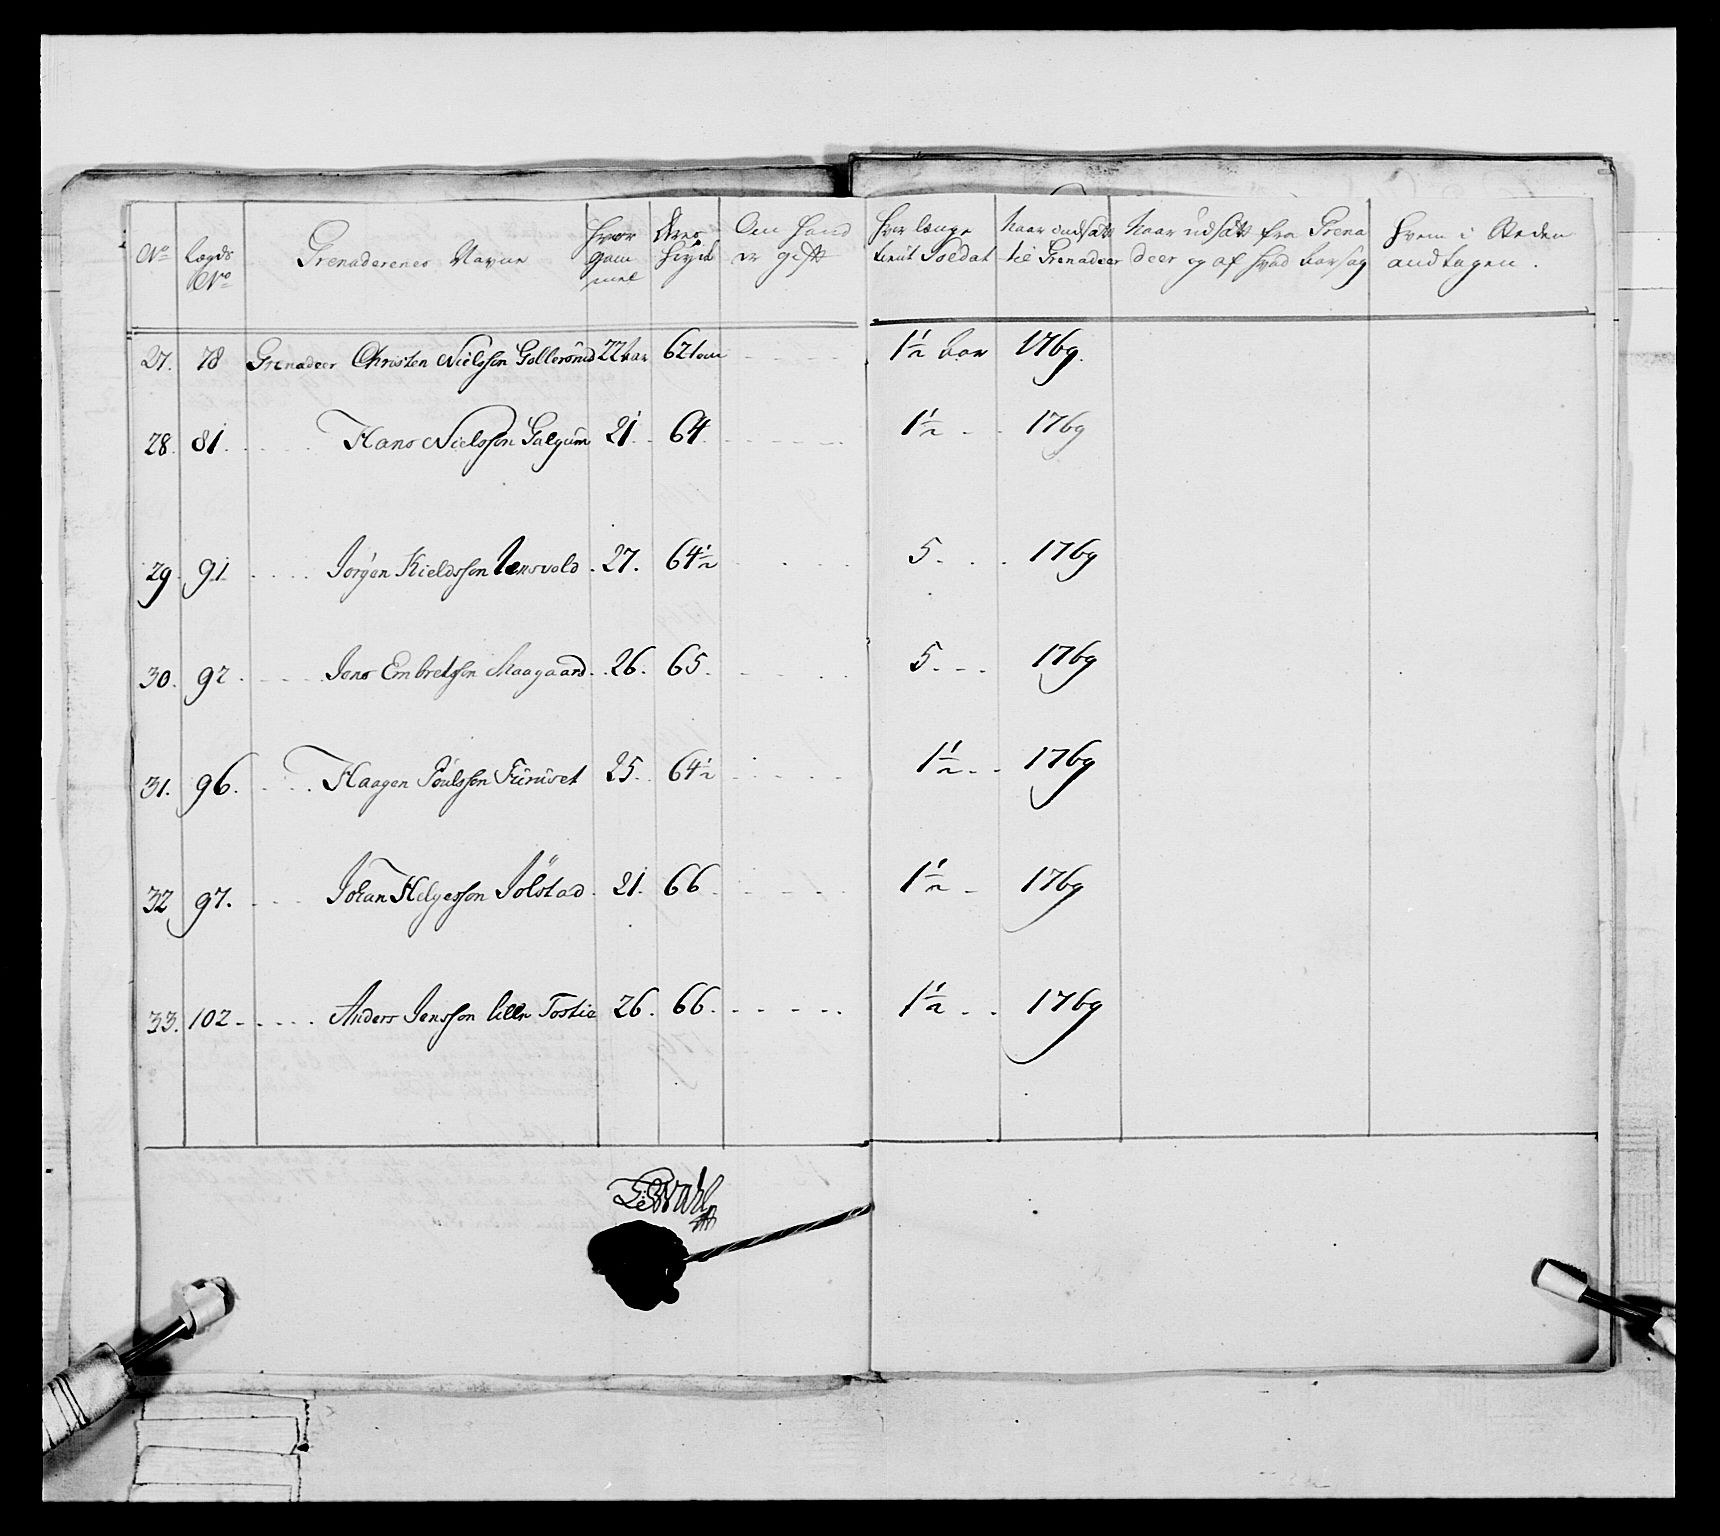 No | Lægds No | Grenaderenes Navne | Hvor gam mel | Deres Høyde | Om hand er gift | Hvor længe tient Soldat | Naar indsatt til Grenadeer | Naar udsatt fra Grena deer og af hvad Aarsag | Hvem i Steden andtagen.
27. 78 Grenadeer Christen Nielsson Gollerønd 22 aar 62 tom 1½ Aar 1769.
28. 81 Hans Nielsson Galgum 21 64 1½ 1769
29 91 Jørgen Kieldsson Tensvold 27. 64½ 5. 1769
30. 92 Jens Embretsson Maagaard 26. 65. 5. 1769
31. 96. Haagen Poulsson Furuset 25. 64½ 1½ 1769
32 97. Johan Helgesson Jølstad 21. 66 1½ 1769
33. 102 Anders Jensson Lille Tostie 26. 66. 1½ 1769